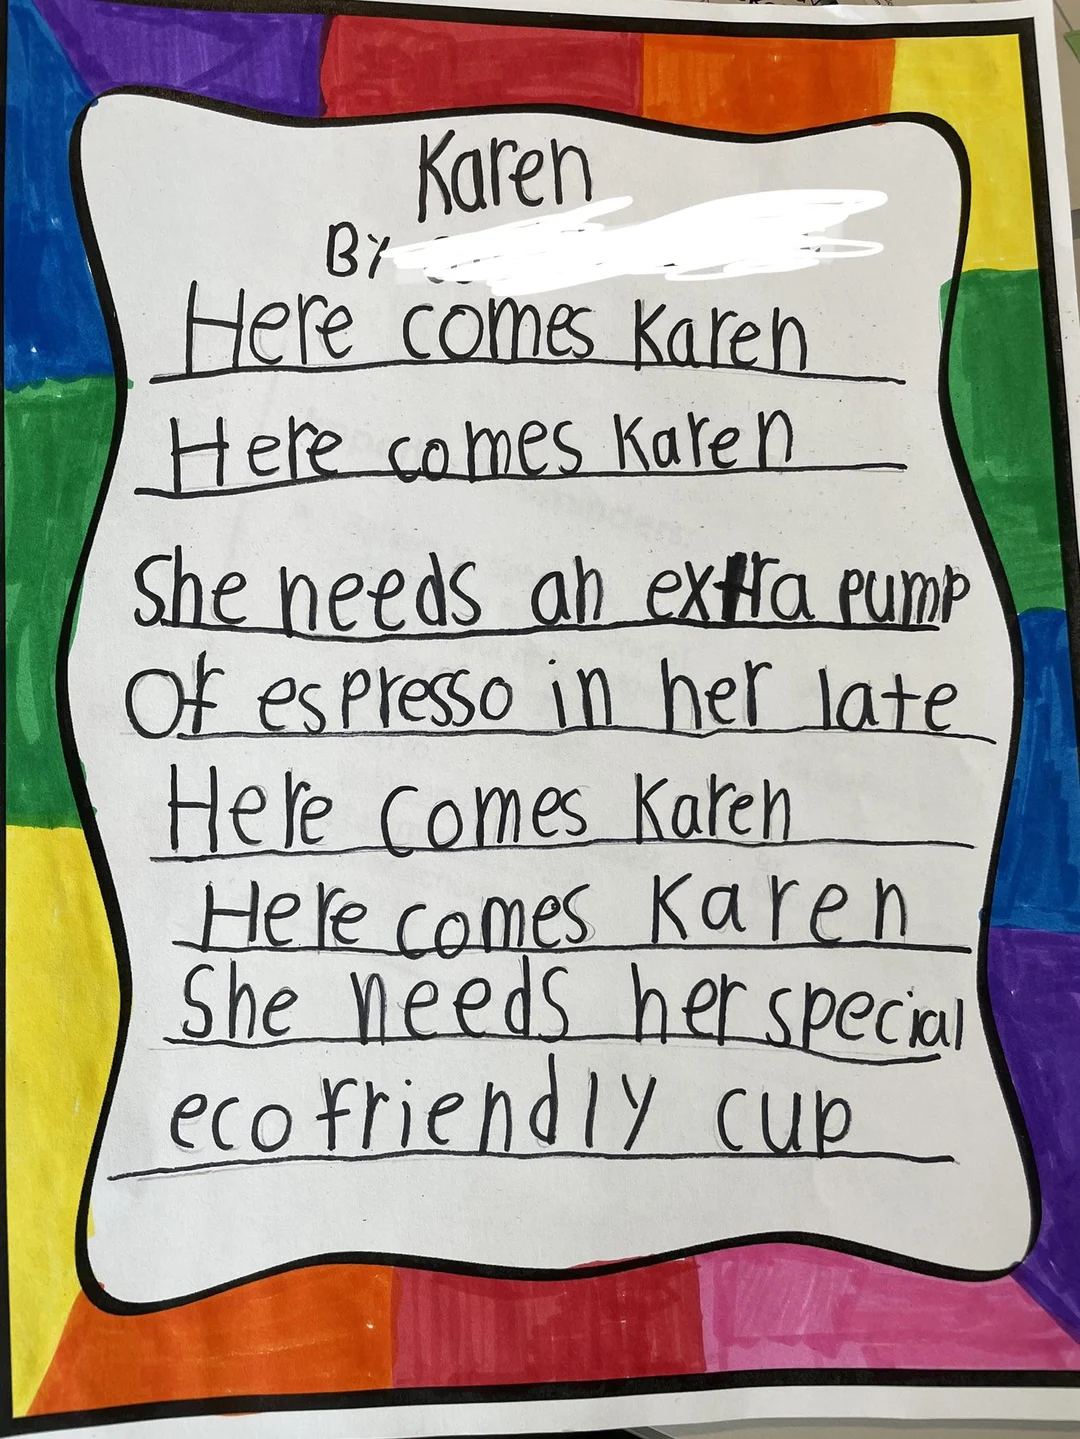 Karen
By
Here comes Karen
Here comes Karen
She needs an extra pump
Of espresso in her late
Here comes Karen
Here comes Karen
She needs her special
eco friendly cup